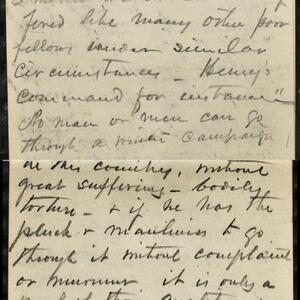 fered like many other poor
fellows under similar
circumstances - Henry's
command for instance"
No man or men can go
through a winter campaign
in this country, without
great suffering - bodily
torture - & if he has the
pluck & manliness to go
through it without complaint
or murmur it is only a